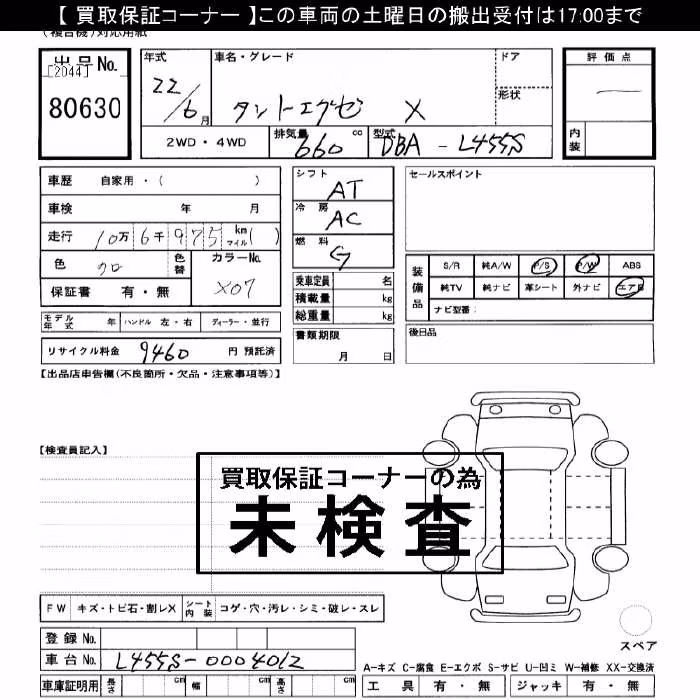 【 買取保証コーナー 】この車両の土曜日の搬出受付は17:00まで
(複合機)対応用紙
出品No. [2044] 80630
年式 22/6月
車名・グレード タントエグゼ X
ドア
形状
評価点 —
内装
2WD・4WD 排気量 660 cc 型式 DBA - L455S
車歴 自家用・( )
車検 年 月
走行 10万 6千 9 7 5 km マイル( )
色 クロ 色替 カラーNo. X07
保証書 有・無
モデル年式 年 ハンドル 左・右 ディーラー・並行
リサイクル料金 9460 円 預託済
シフト AT
冷房 AC
燃料 G
乗車定員 名
積載量 kg
総重量 kg
書類期限 月 日
セールスポイント
装備品 S/R 純A/W P/S P/W ABS
純TV 純ナビ 革シート 外ナビ エアB
ナビ型番:
後日品
【出品店申告欄(不良箇所・欠品・注意事項等)】
【検査員記入】
買取保証コーナーの為
未検査
FW キズ・トビ石・割レX シート内装 コゲ・穴・汚レ・シミ・破レ・スレ
登録No.
車台No. L455S-0004012
車庫証明用 長さ cm 幅 cm 高さ cm
スペア
A-キズ C-腐食 E-エクボ S-サビ U-凹ミ W-補修 XX-交換済
工具 有・無 ジャッキ 有・無